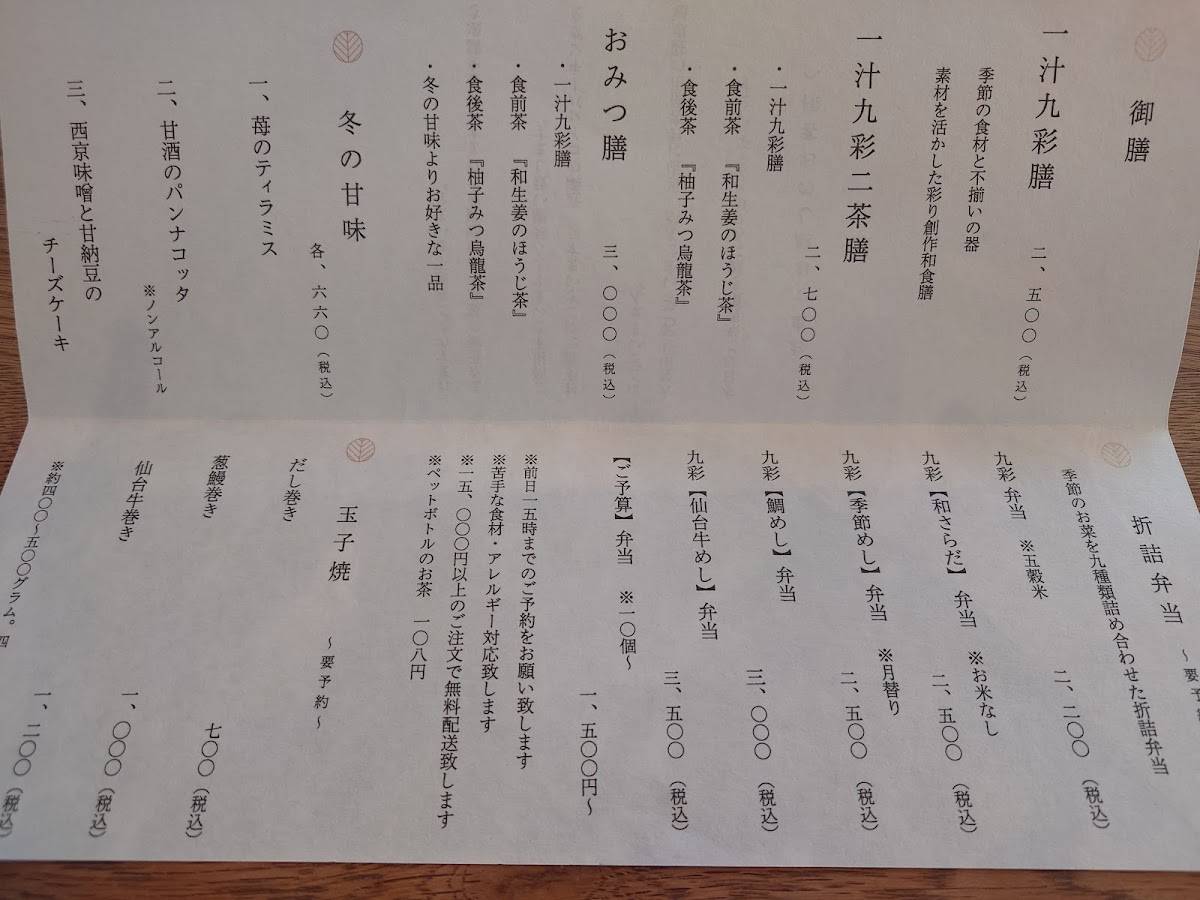 御膳
一汁九彩膳
季節の食材と不揃いの器
素材を活かした彩り創作和食膳
二、五〇〇（税込）
一汁九彩二茶膳
二、七〇〇（税込）
・一汁九彩膳
・食前茶 『和生姜のほうじ茶』
・食後茶 『柚子みつ烏龍茶』
おみつ膳
三、〇〇〇（税込）
・一汁九彩膳
・食前茶 『和生姜のほうじ茶』
・食後茶 『柚子みつ烏龍茶』
・冬の甘味よりお好きな一品
冬の甘味
各、六六〇（税込）
一、苺のティラミス
二、甘酒のパンナコッタ
※ノンアルコール
三、西京味噌と甘納豆の
チーズケーキ
折詰弁当 ～要予
季節のお菜を九種類詰め合わせた折詰弁当
九彩 弁当 ※五穀米
二、二〇〇（税込）
九彩【和さらだ】弁当 ※お米なし
二、五〇〇（税込）
九彩【季節めし】弁当 ※月替り
二、五〇〇（税込）
九彩【鯛めし】弁当
三、〇〇〇（税込）
九彩【仙台牛めし】弁当
三、五〇〇（税込）
【ご予算】弁当 ※一〇個～
一、五〇〇円～
※前日一五時までのご予約をお願い致します
※苦手な食材・アレルギー対応致します
※一五、〇〇〇円以上のご注文で無料配送致します
※ペットボトルのお茶 一〇八円
玉子焼 ～要予約～
だし巻き
七〇〇（税込）
葱鰻巻き
一、〇〇〇（税込）
仙台牛巻き
一、二〇〇（税込）
※約四〇〇～五〇〇グラム。四